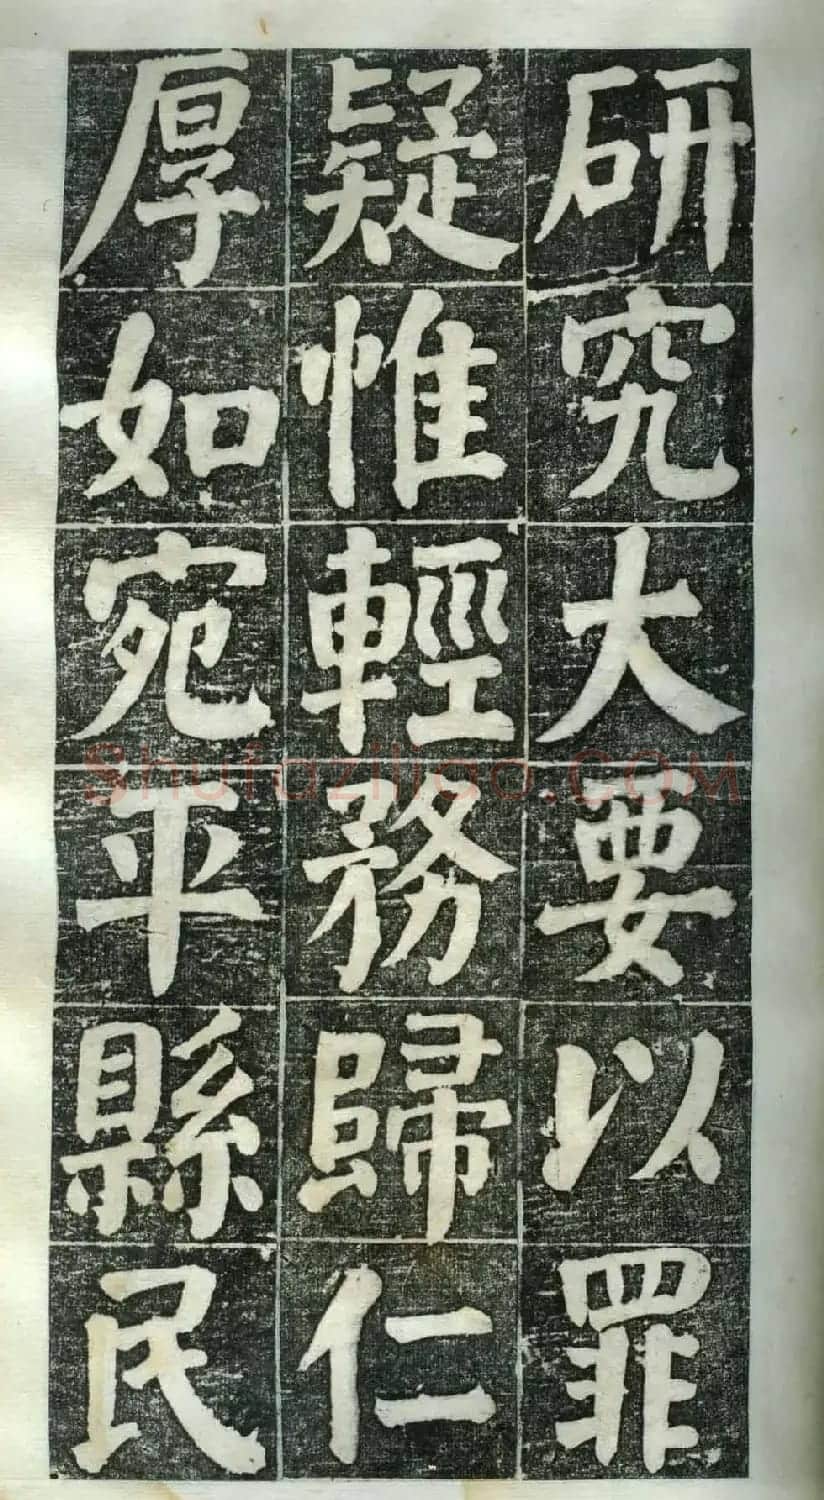 研究大要以罪
疑惟輕務歸仁
厚如宛平縣民
Shufaziliao.COM